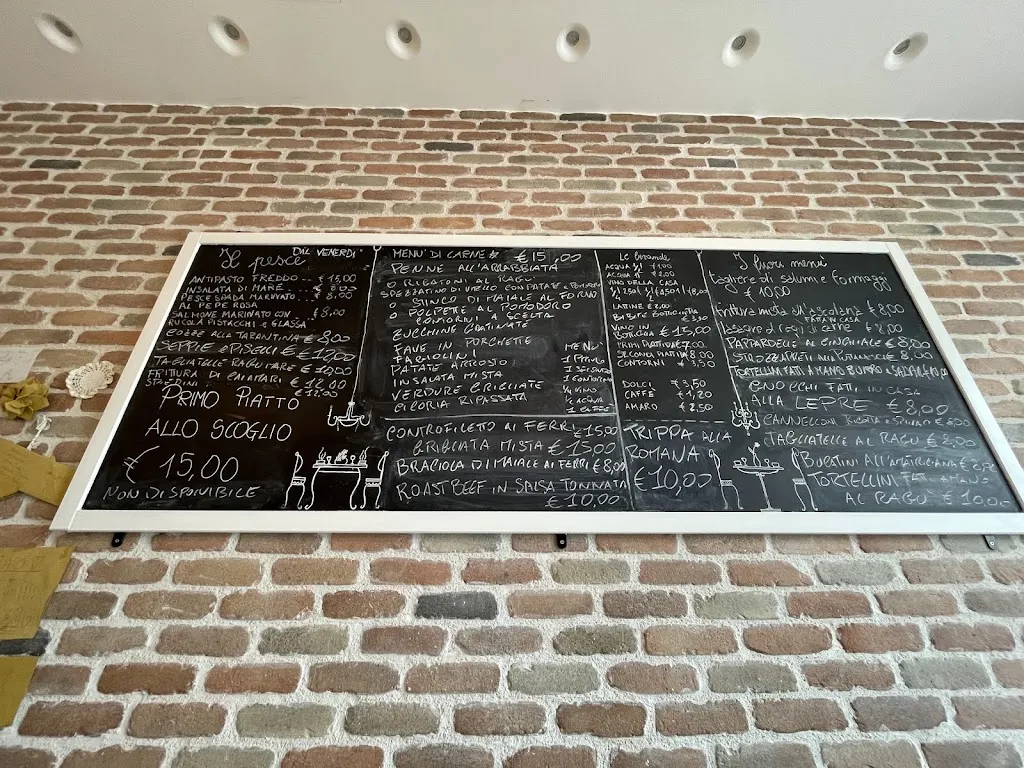 Il pesce
DAL VENERDI
ANTIPASTO FREDDO € 15,00
INSALATA DI MARE € 8,00
PESCE SPADA MARINATO € 8,00
AL PEPE ROSA
SALMONE MARINATO CON € 8,00
RUCOLA PISTACCHI e GLASSA
COZZE ALLA TARANTINA € 8,00
SEPPIE e PISELLI € 12,00
TAGLIATELLE RAGU MARE € 10,00
FRITURA DI CALAMARI € 12,00
€ 12,00
PRIMO PIATTO
ALLO SCOGLIO
€ 15,00
NON DISPONIBILE
MENU' DI CARNE € 15,00
PENNE ALL'ARRABBIATA
O RIGATONI AL RAGU
SPEZZATINO DI VITELLO CON PATATE
STINCO DI MAIALE AL FORNO
O POLPETTE AL POMODORO
CONTORNI A SCELTA
ZUCCHINE GRATINATE
FAVE IN PORCHETTA
FAGIOLINI
PATATE ARROSTO
INSALATA MISTA
VERDURE GRIGLIATE
CICORIA RIPASSATA
MENU'
1 PRIMO
1 SECONDO
1 CONTORNO
1/4 VINO
1/2 ACQUA
1 CAFFE
CONTROFILETO AI FERRI € 15,00
GRIGLIATA MISTA € 15,00
BRACIOLA DI MAIALE AI FERRI € 8,00
ROAST BEEF IN SALSA TONNATA
€ 10,00
Le bevande
ACQUA 1/2 € 1,00
ACQUA € 2,00
VINO DELLA CASA
LATTINE € 2,00
VINO IN
BOTTIGLIA € 15,00
PRIMI PIATTI € 7,00
SECONDI PIATTI € 8,00
CONTORNI € 3,50
DOLCI € 3,50
CAFFE € 1,20
AMARO € 2,50
TRIPPA ALLA
ROMANA
€ 10,00
I fuori menu
tagliere di salumi e formaggi
€ 10,00
frittura mista all'ascolana € 8,00
FATTA IN CASA
€ 8,00
PAPPARDELLE AL CINGHIALE € 8,00
STROZZAPRETI
TORTELLINI FATI A MANO
GNOCCHI FATI IN CASA
ALLA LEPRE € 8,00
CANNELLONI RICOTTA e SPINACI € 8,00
TAGLIATELLE AL RAGU € 8,00
BUCATINI ALL'AMATRICIANA €
TORTELLINI FATI A MANO
AL RAGU € 10,00